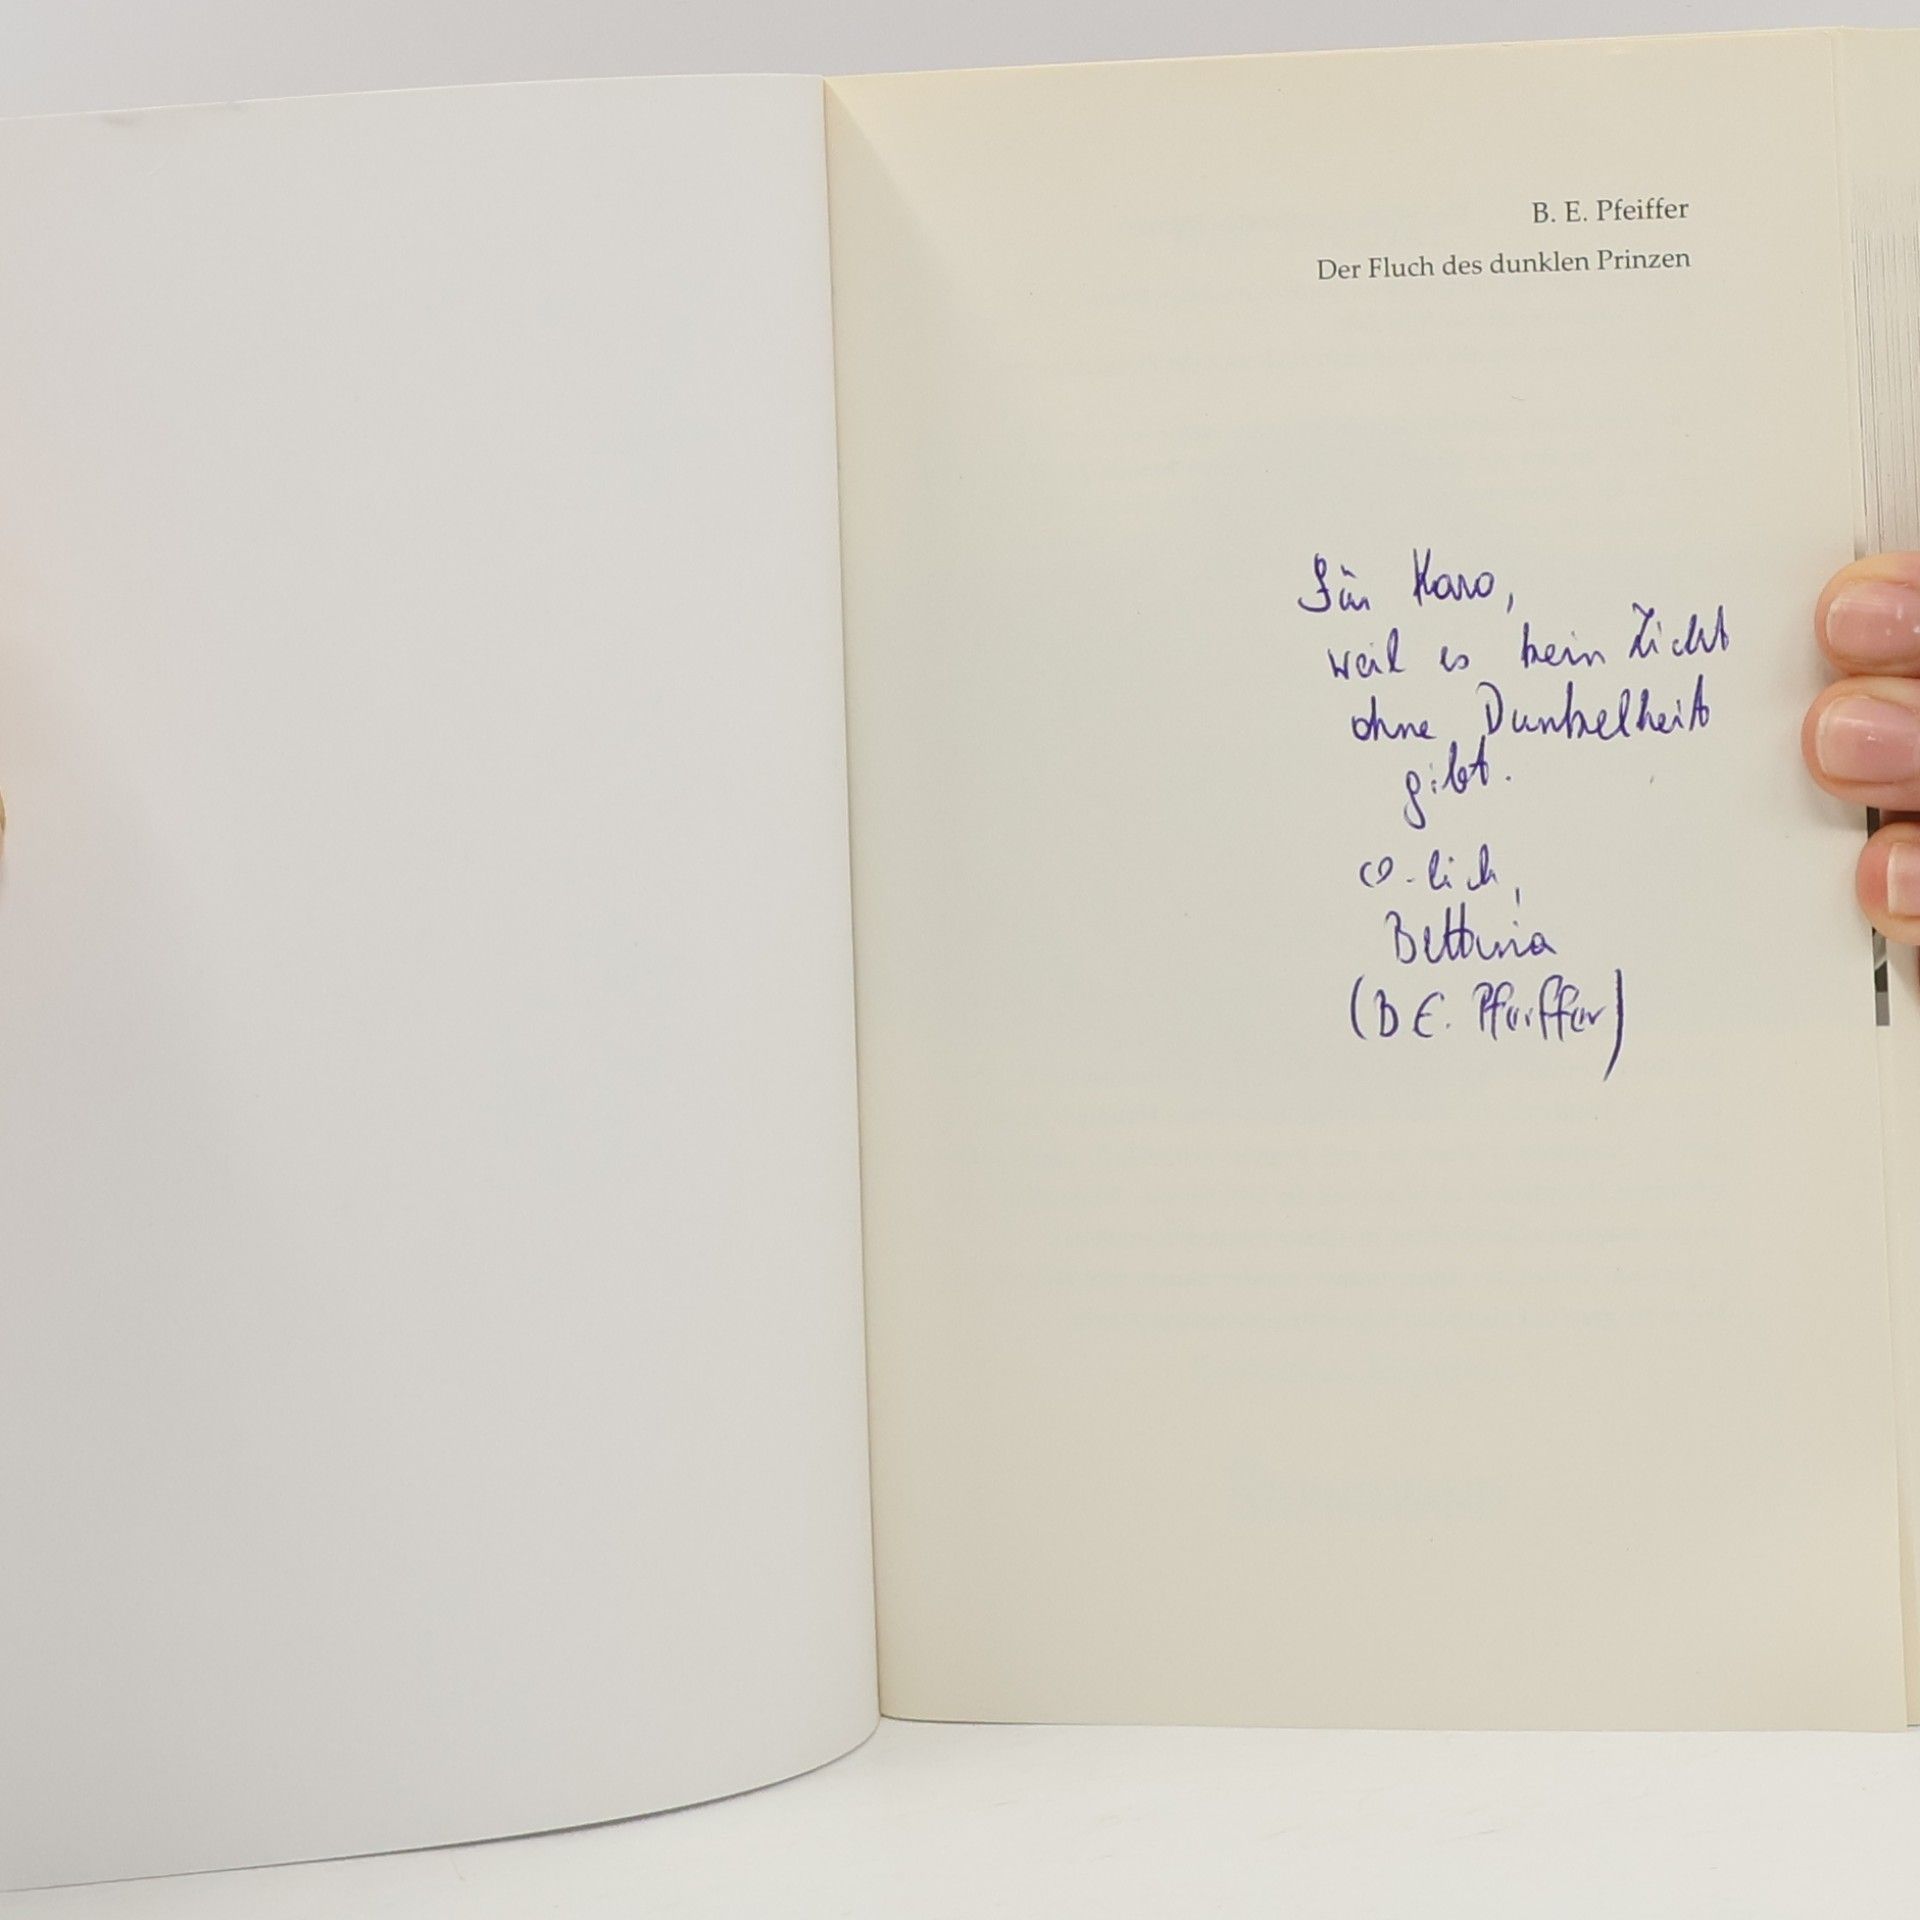 B. E. Pfeiffer
Der Fluch des dunklen Prinzen
Für Karo,
weil es kein Licht
ohne Dunkelheit
gibt.
♡-lich,
Bettina
(B.E. Pfeiffer)